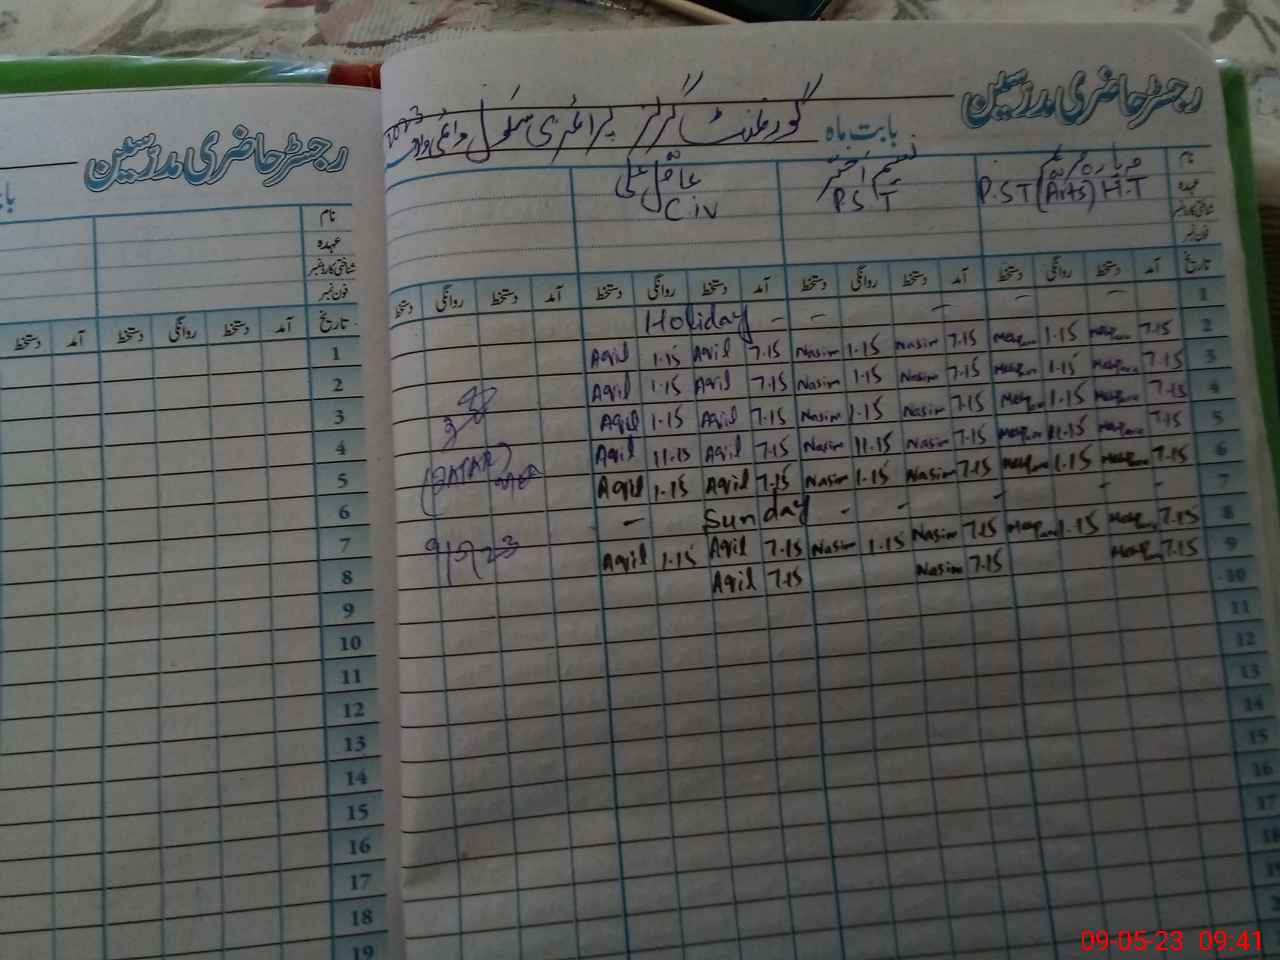 رجسٹر حاضری مدرسین
بابت ماہ گورنمنٹ گرلز پرائمری سکول
نام
نسیم اختر
عاقل علی
عہدہ P.S.T (Arts) H.T
P.S T
Civ
شناختی کارڈ نمبر
فون نمبر
تاریخ آمد دستخط روانگی دستخط آمد دستخط روانگی دستخط آمد دستخط روانگی دستخط آمد دستخط روانگی دستخط
1 - - - - - Holiday
2 7.15 1.15 7.15 Nasim 1.15 Nasim 7.15 Aqil 1.15 Aqil
3 7.15 1.15 7.15 Nasim 1.15 Nasim 7.15 Aqil 1.15 Aqil
4 7.15 1.15 7.15 Nasim 1.15 Nasim 7.15 Aqil 1.15 Aqil
5 7.15 11.15 7.15 Nasim 11.15 Nasim 7.15 Aqil 11.15 Aqil
6 7.15 1.15 7.15 Nasim 1.15 Nasim 7.15 Aqil 1.15 Aqil
7 - - - - - Sunday -
8 7.15 1.15 7.15 Nasim 1.15 Nasim 7.15 Aqil 1.15 Aqil
9 7.15 7.15 Nasim 7.15 Aqil
10
11
12
13
14
15
16
17
18
رجسٹر حاضری مدرسین
نام
عہدہ
شناختی کارڈ نمبر
فون نمبر
تاریخ آمد دستخط روانگی دستخط آمد دستخط
1
2
3
4
5
6
7
8
9
10
11
12
13
14
15
16
17
18
19
09-05-23 09:41